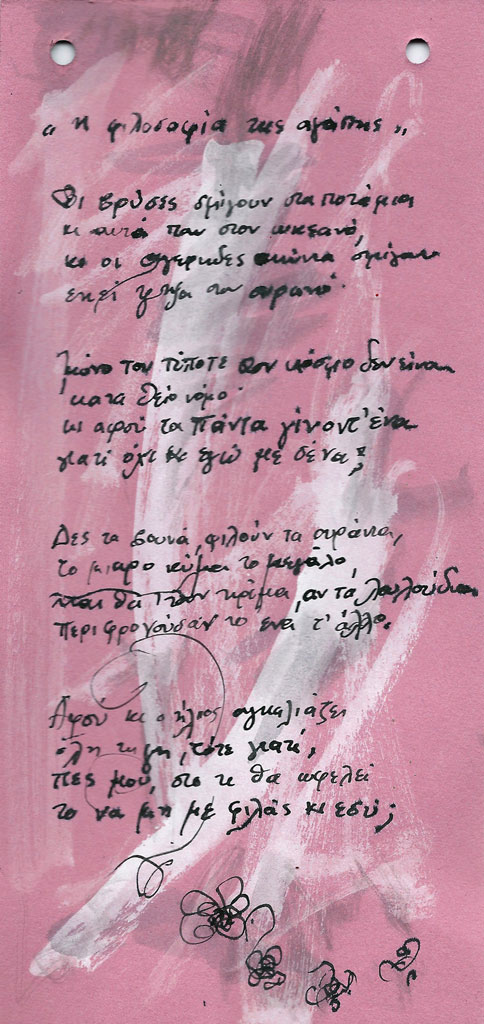 „ Η φιλοσοφία της αγάπης „
Οι βρύσες σμίγουν στα ποτάμια
κι αυτά παν στον ωκεανό,
κι οι αγέρηδες αιώνια σμίγουν
εκεί ψηλά στον ουρανό.
Μόνο του τίποτε στον κόσμο δεν είναι
κατά θείο νόμο
κι αφού τα πάντα γίνοντ' ένα
γιατί όχι κι εγώ με σένα;
Δες τα βουνά, φιλούν τα ουράνια,
το μικρό κύμα το μεγάλο,
και θα 'ταν κρίμα, αν τα λουλούδια
περιφρονούσαν το ένα τ' άλλο.
Αφού κι ο ήλιος αγκαλιάζει
όλη τη γη, τότε γιατί,
πες μου, στο τι θα ωφελεί
το να μη με φιλάς κι εσύ;